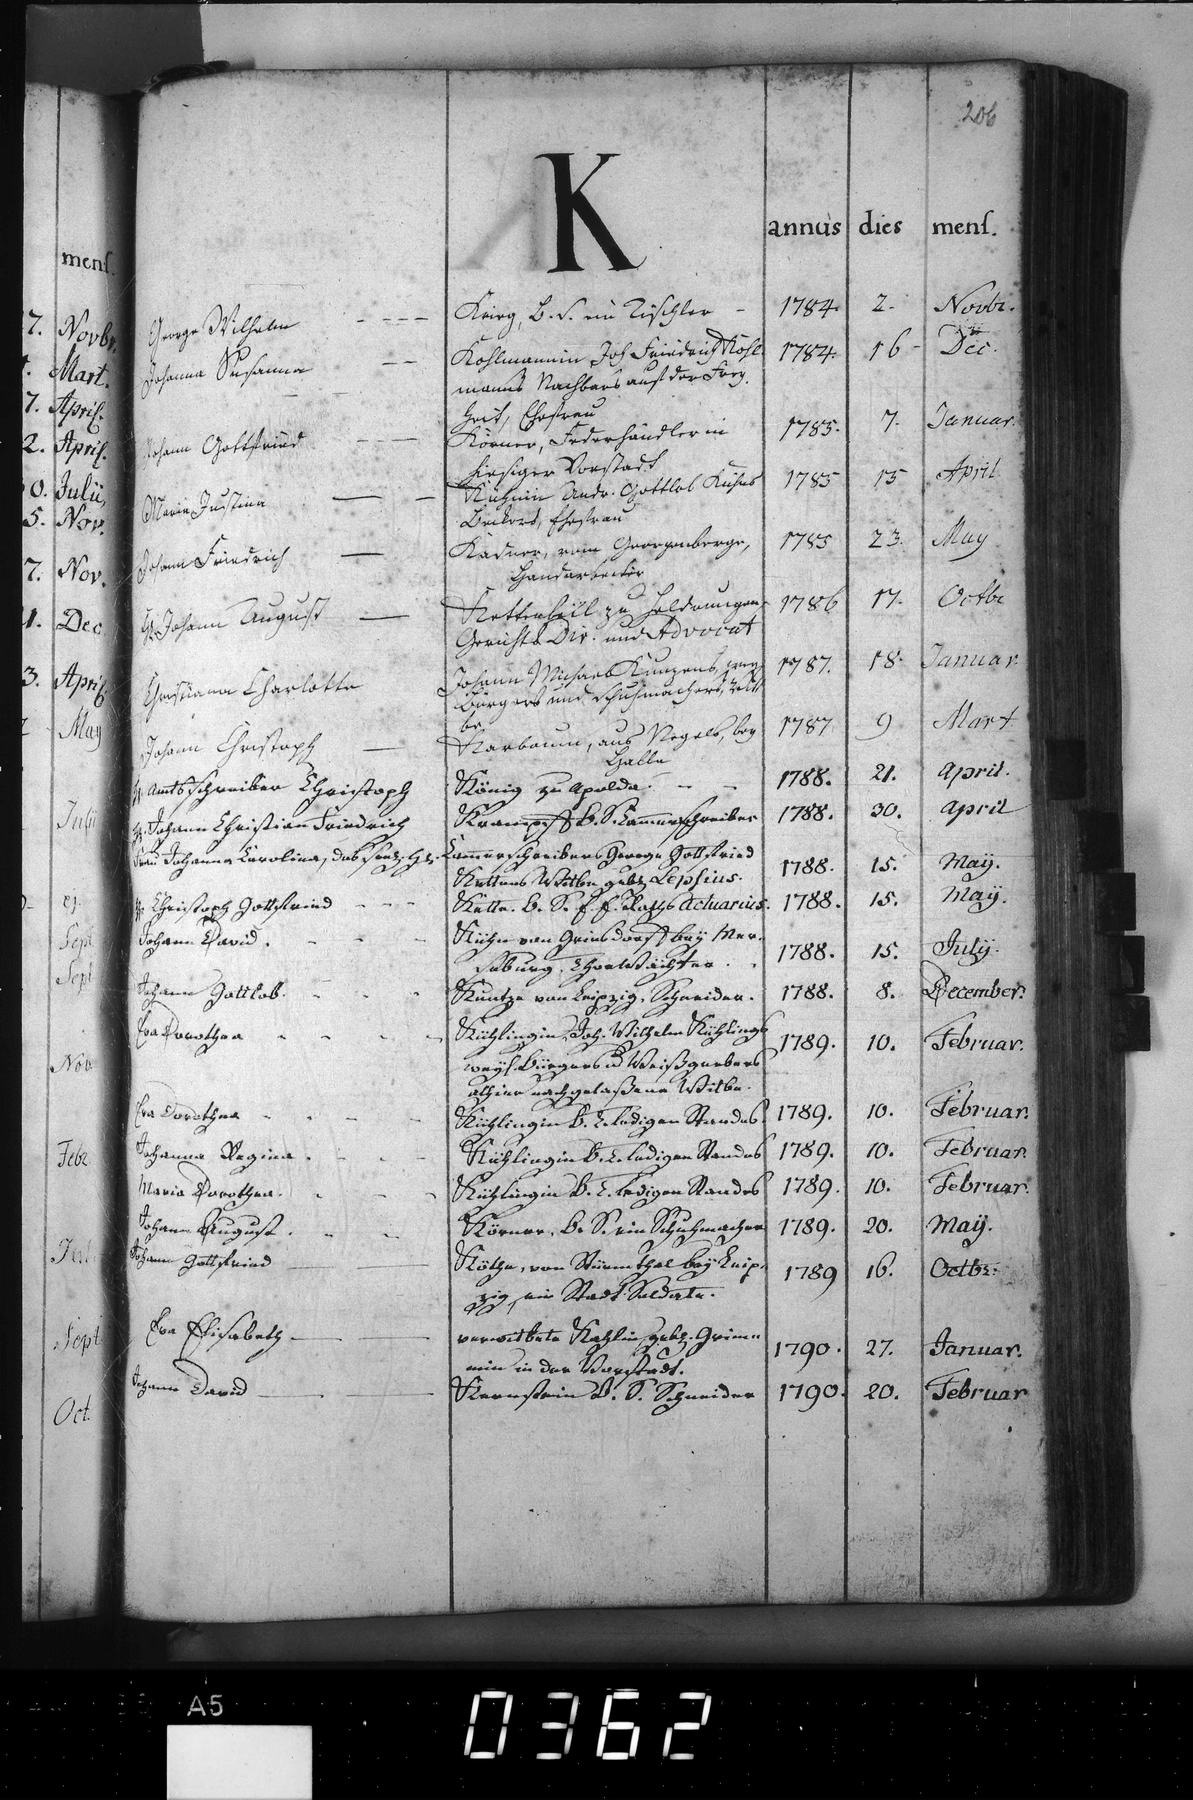 206
K
annus dies mens.
mens.
George Wilhelm - - - - Krieg, B. S. ein Tischler - 1784. 2. Novbr.
Johanna Susanna - - Kohlmannin Joh. Friedrich Kohl- 1784. 16 Dec.
manns Nachbars auf der Frey-
heit, Ehefrau
Johann Gottfried - - - Körner, Federhändler in 1785. 7. Januar.
hiesiger Vorstadt
Maria Justina — — Kühnin Andr. Gottlob Kühns 1785 15 April
Beckers, Ehefrau
Johann Friedrich — Kadner, vom Georgenberge, 1785 23. May
Handarbeiter
H. Johann August — Kettenbeill zu Heldrungen 1786 17. Octbr
Gerichts Dir. und Advocat
Christiana Charlotte Johann Michael Kunzens, 1787. 18. Januar.
Bürgers und Schuhmachers, Witt
be.
Johann Christoph — Karbaum, aus Regels, bey 1787 9 Mart
Halle
H. Amtsschreiber Christoph König zu Apolda. - - 1788. 21. April.
H. Johann Christian Friedrich Krampff B. S. Cammerschreiber 1788. 30. April
Frau Johanna Carolina, des H. Cammerschreibers George Gottfried
Kettens Witbe gebh. Lepsius. 1788. 15. May.
H. Christoph Gottfried - - - Kette. B. S. E. E. Raths Actuarius. 1788. 15. May.
Johann David. - - - Kühn von Griesdorff bey Mer-
seburg, Thorwächter. 1788. 15. July.
Johann Gottlob. - - - Kuntze von Leipzig, Schneider. 1788. 8. December.
Eva Dorothea - - - - Kühlingin, Joh. Wilhelm Kühlings 1789. 10. Februar.
weyl. Bürgers u. Weißgerbers
alhier nachgelaßene Witbe.
Eva Dorothea - - - - Kühlingin B. T. ledigen Standes. 1789. 10. Februar.
Johanna Regina. - - - Kühlingin B. T. ledigen Standes 1789. 10. Februar.
Maria Dorothea. - - - Kühlingin B. T. ledigen Standes 1789. 10. Februar.
Johann August. - - Körner, B. S. ein Schuhmacher 1789. 20. May.
Johann Gottfried — — Köthe, von Störmthal bey Leip- 1789 16. Octbr.
zig, ein Stadt Soldate.
Eva Elisabeth — — verwitbete Kahlin, gebh. Grim- 1790. 27. Januar.
min in der Vorstadt.
Johann David — — Kernstein B. S. Schneider 1790. 20. Februar
7. Novbr.
Mart.
7. April.
2. April.
0. Julii,
5. Nov.
7. Nov.
1. Dec
3. April.
May
Julii
ej.
Sept
Sept
Nov.
Febr
Jul.
Sept
Oct.
A5
0362